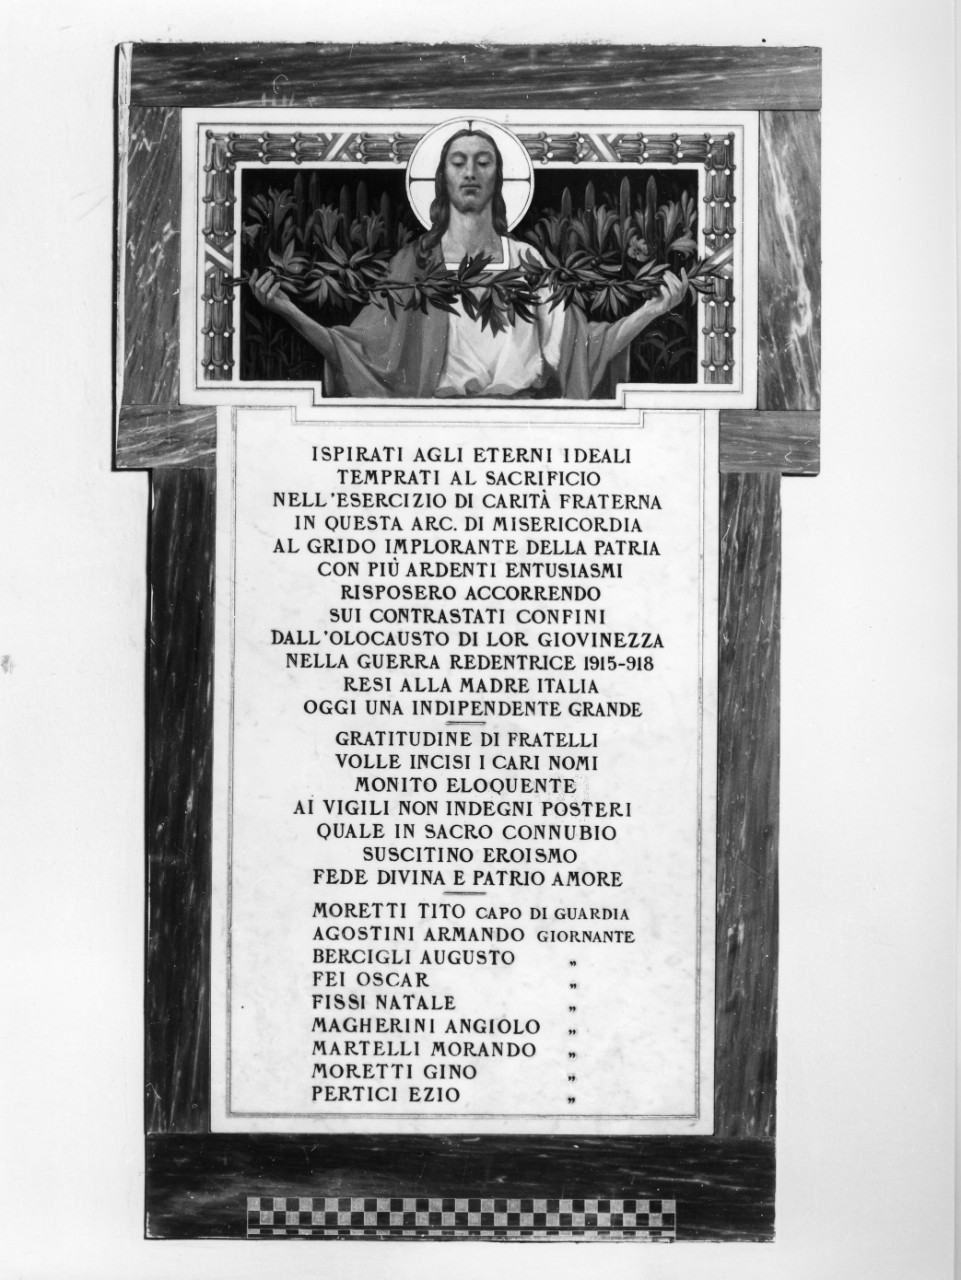 ISPIRATI AGLI ETERNI IDEALI
TEMPRATI AL SACRIFICIO
NELL'ESERCIZIO DI CARITÀ FRATERNA
IN QUESTA ARC. DI MISERICORDIA
AL GRIDO IMPLORANTE DELLA PATRIA
CON PIÙ ARDENTI ENTUSIASMI
RISPOSERO ACCORRENDO
SUI CONTRASTATI CONFINI
DALL'OLOCAUSTO DI LOR GIOVINEZZA
NELLA GUERRA REDENTRICE 1915-918
RESI ALLA MADRE ITALIA
OGGI UNA INDIPENDENTE GRANDE
GRATITUDINE DI FRATELLI
VOLLE INCISI I CARI NOMI
MONITO ELOQUENTE
AI VIGILI NON INDEGNI POSTERI
QUALE IN SACRO CONNUBIO
SUSCITINO EROISMO
FEDE DIVINA E PATRIO AMORE
MORETTI TITO CAPO DI GUARDIA
AGOSTINI ARMANDO GIORNANTE
BERCIGLI AUGUSTO „
FEI OSCAR „
FISSI NATALE „
MAGHERINI ANGIOLO „
MARTELLI MORANDO „
MORETTI GINO „
PERTICI EZIO „